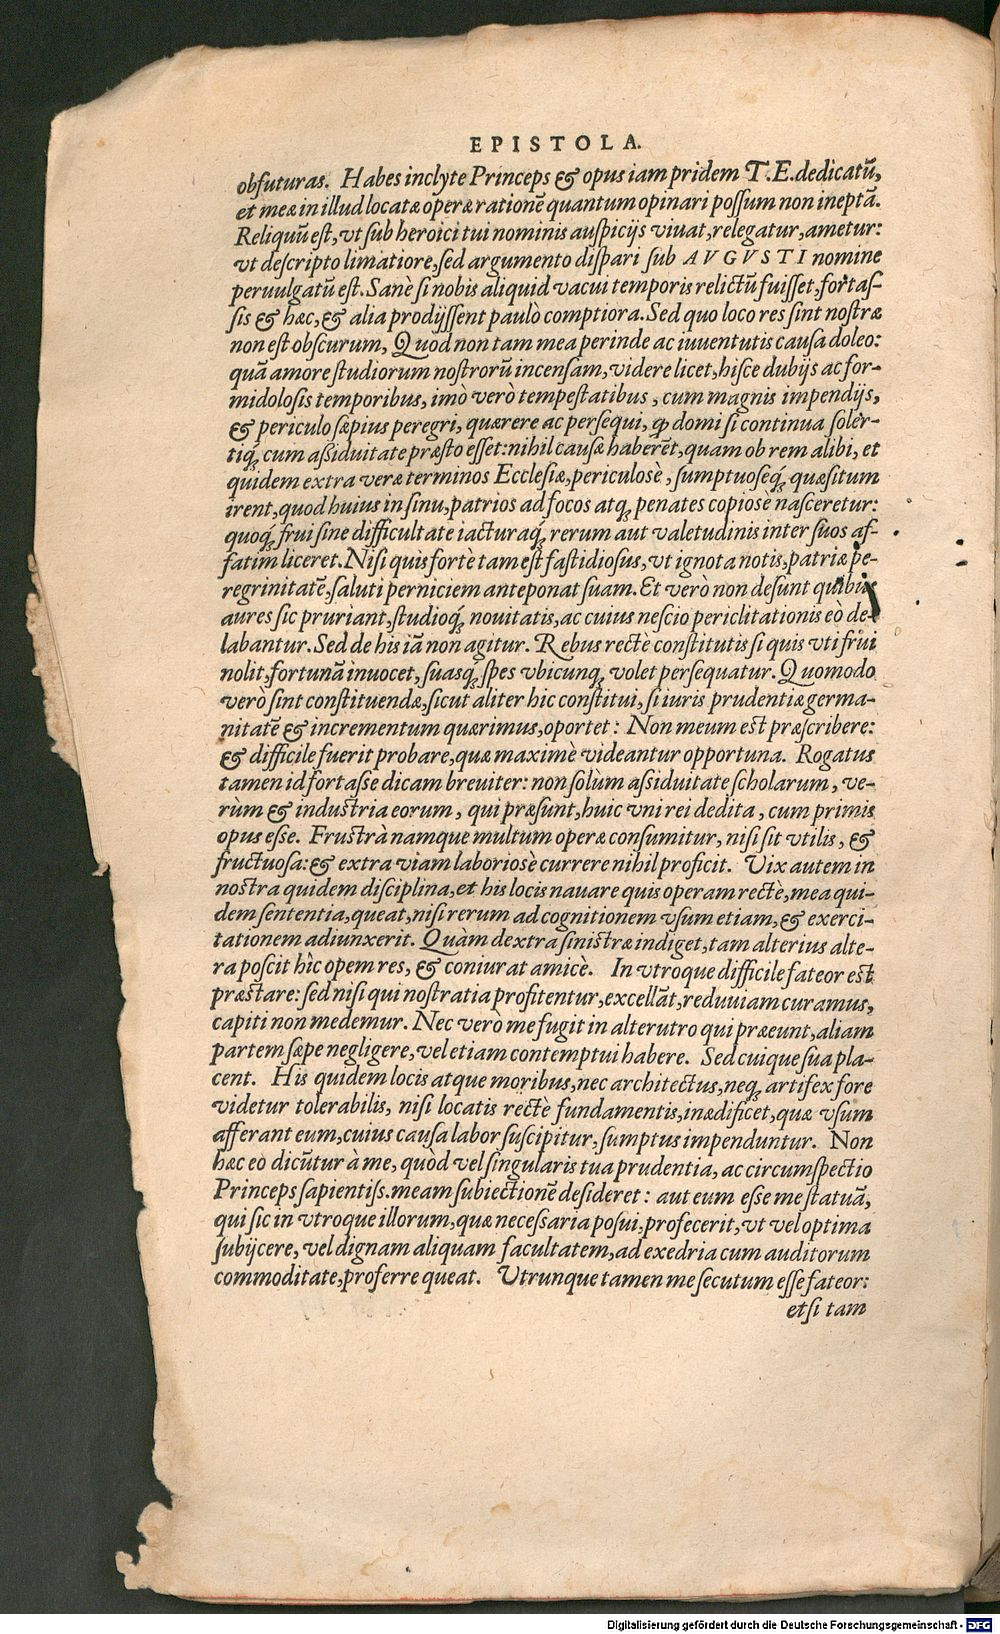 EPISTOLA.
obfuturas. Habes inclyte Princeps & opus iam pridem T.E. dedicatū,
et meæ in illud locatæ operæ rationē quantum opinari possum non ineptā.
Reliquū est, vt sub heroici tui nominis auspicijs viuat, relegatur, ametur:
vt descripto limatiore, sed argumento dispari sub AVGVSTI nomine
peruulgatū est. Sanè si nobis aliquid vacui temporis relictū fuisset, fortas-
sis & hæc, & alia prodijssent paulò comptiora. Sed quo loco res sint nostræ
non est obscurum, Quod non tam mea perinde ac iuuentutis causa doleo:
quā amore studiorum nostrorū incensam, videre licet, hisce dubijs ac for-
midolosis temporibus, imò verò tempestatibus, cum magnis impendijs,
& periculo sæpius peregri, quærere ac persequi, ꝙ domi si continua soler-
tiq́ꝫ cum assiduitate præsto esset: nihil causæ haberēt, quam ob rem alibi, et
quidem extra veræ terminos Ecclesiæ, periculosè, sumptuoseq́ꝫ quæsitum
irent, quod huius in sinu, patrios ad focos atqꝫ penates copiosè nasceretur:
quoq́ꝫ frui sine difficultate iacturaq́ꝫ rerum aut valetudinis inter suos af-
fatim liceret. Nisi quis fortè tam est fastidiosus, vt ignota notis, patriæ pe-
regrinitatē, saluti perniciem anteponat suam. Et verò non desunt quibus
aures sic pruriant, studioq́ꝫ nouitatis, ac cuius nescio periclitationis eò de-
labantur. Sed de his iā non agitur. Rebus rectè constitutis si quis vti frui
nolit, fortunā inuocet, suasq́ꝫ spes vbicunqꝫ volet persequatur. Quomodo
verò sint constituendæ, sicut aliter hic constitui, si iuris prudentiæ germa-
nitatē & incrementum quærimus, oportet: Non meum est præscribere:
& difficile fuerit probare, quæ maximè videantur opportuna. Rogatus
tamen id fortasse dicam breuiter: non solùm assiduitate scholarum, ve-
rùm & industria eorum, qui præsunt, huic vni rei dedita, cum primis
opus esse. Frustrà namque multum operæ consumitur, nisi sit vtilis, &
fructuosa: & extra viam laboriosè currere nihil proficit. Vix autem in
nostra quidem disciplina, et his locis nauare quis operam rectè, mea qui-
dem sententia, queat, nisi rerum ad cognitionem vsum etiam, & exerci-
tationem adiunxerit. Quàm dextra sinistræ indiget, tam alterius alte-
ra poscit hîc opem res, & coniurat amicè. In vtroque difficile fateor est
præstare: sed nisi qui nostratia profitentur, excellāt, reduuiam curamus,
capiti non medemur. Nec verò me fugit in alterutro qui præeunt, aliam
partem sæpe negligere, vel etiam contemptui habere. Sed cuique sua pla-
cent. His quidem locis atque moribus, nec architectus, neqꝫ artifex fore
videtur tolerabilis, nisi locatis rectè fundamentis, inædificet, quæ vsum
afferant eum, cuius causa labor suscipitur, sumptus impenduntur. Non
hæc eò dicūtur à me, quòd vel singularis tua prudentia, ac circumspectio
Princeps sapientiss. meam subiectionē desideret: aut eum esse me statuā,
qui sic in vtroque illorum, quæ necessaria posui, profecerit, vt vel optima
subijcere, vel dignam aliquam facultatem, ad exedria cum auditorum
commoditate, proferre queat. Vtrunque tamen me secutum esse fateor:
etsi tam
Digitalisierung gefördert durch die Deutsche Forschungsgemeinschaft - DFG